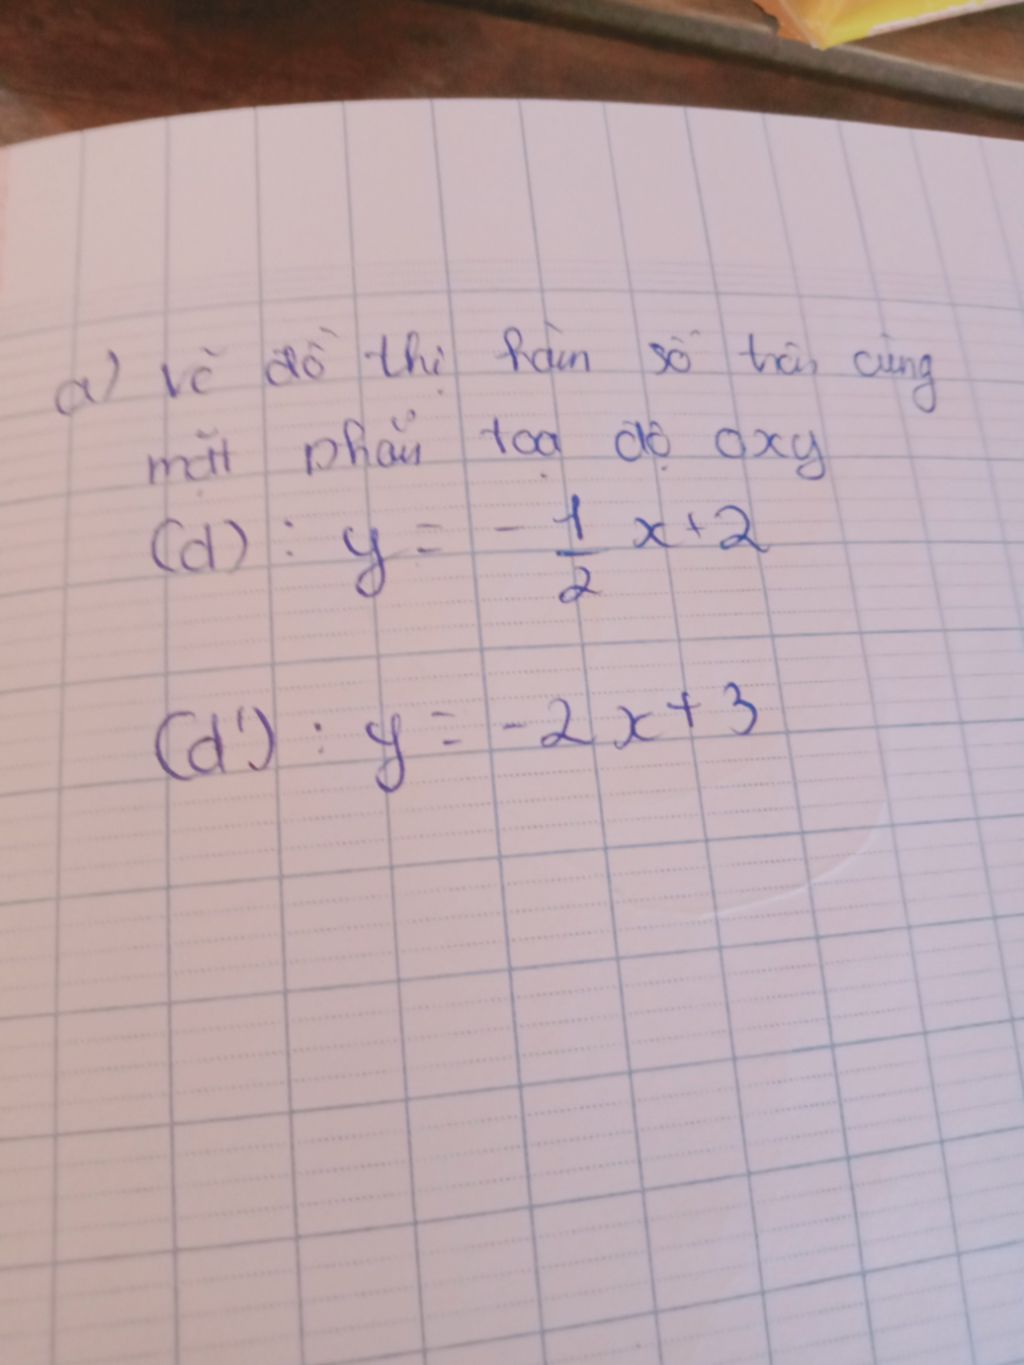 a) Vẽ đồ thị hàm số trên cùng
mặt phẳng toạ độ oxy
(d) : y = - 1/2 x + 2
(d') : y = - 2x + 3